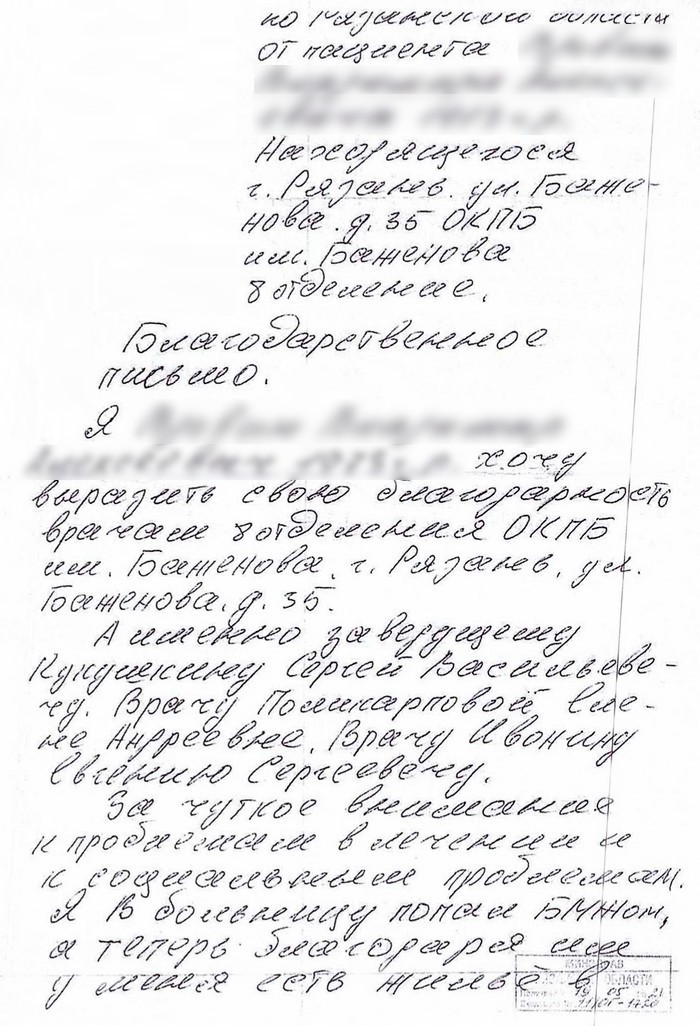 по Рязанской области
от пациента
Находящегося
г. Рязань. ул. Баже-
нова. д. 35 ОКПБ
им. Баженова
8 отделение.
Благодарственное
письмо.
Я
хочу
выразить свою благодарность
врачам 8 отделения ОКПБ
им. Баженова. г. Рязань, ул.
Баженова. д. 35.
А именно заведущему
Кукушкину Сергей Васильеве-
чу. Врачу Поликарповой Еле-
не Андреевне. Врачу Ивонину
Евгению Сергеевечу.
За чуткое внимание
к проблемам в лечении и
к социальным проблемам.
Я в больницу попал БМЖом,
а теперь благодаря им
у меня есть жильё в
МИНЗДРАВ
ОБЛАСТИ
19 05 21